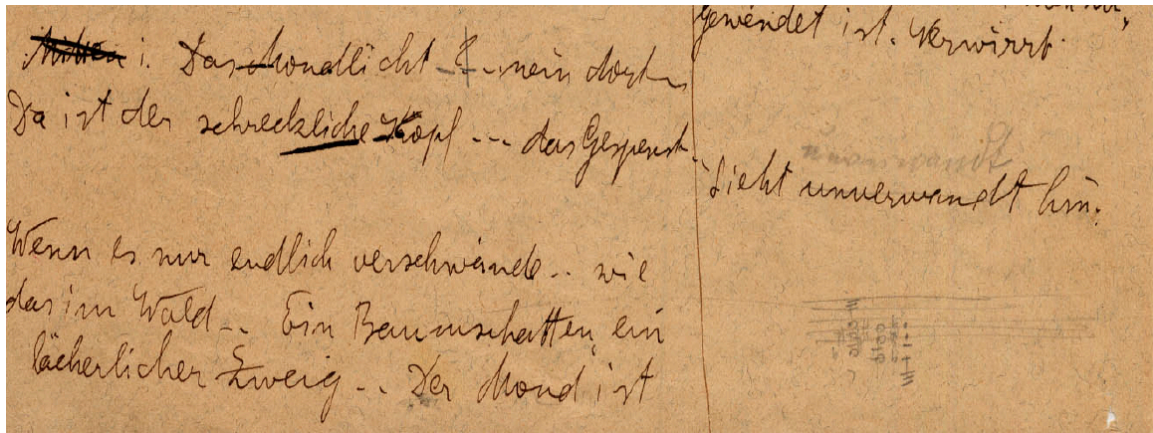 i. Das Mondlicht .. nein dort ..
Da ist der schreckliche Kopf --- das Gespenst ..
Wenn es nur endlich verschwände .. wie
das im Wald .. Ein Baumschatten, ein
lächerlicher Zweig .. Der Mond ist
gewendet ist. Verwirrt.
unverwandt
Sieht unverwandt hin.